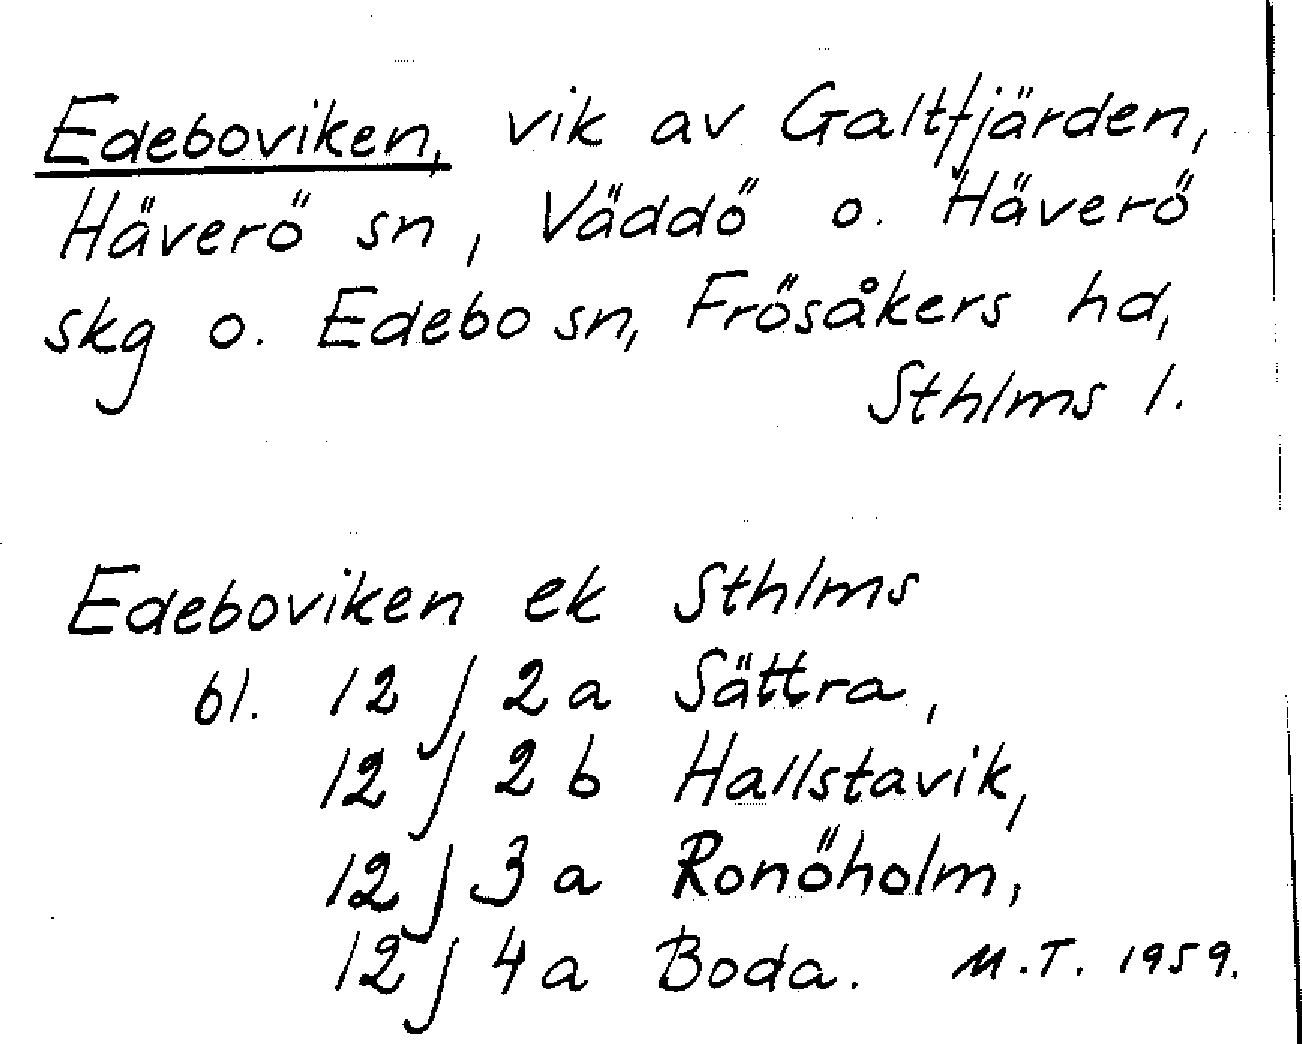 Edeboviken, vik av Galtfjärden,
Häverö sn, Väddö o. Häverö
skg o. Edebo sn, Frösåkers hd,
Sthlms l.
Edeboviken ek Sthlms
bl. 12 j 2 a Sättra,
12 j 2 b Hallstavik,
12 j 3 a Ronöholm,
12 j 4 a Boda. M.T. 1959.